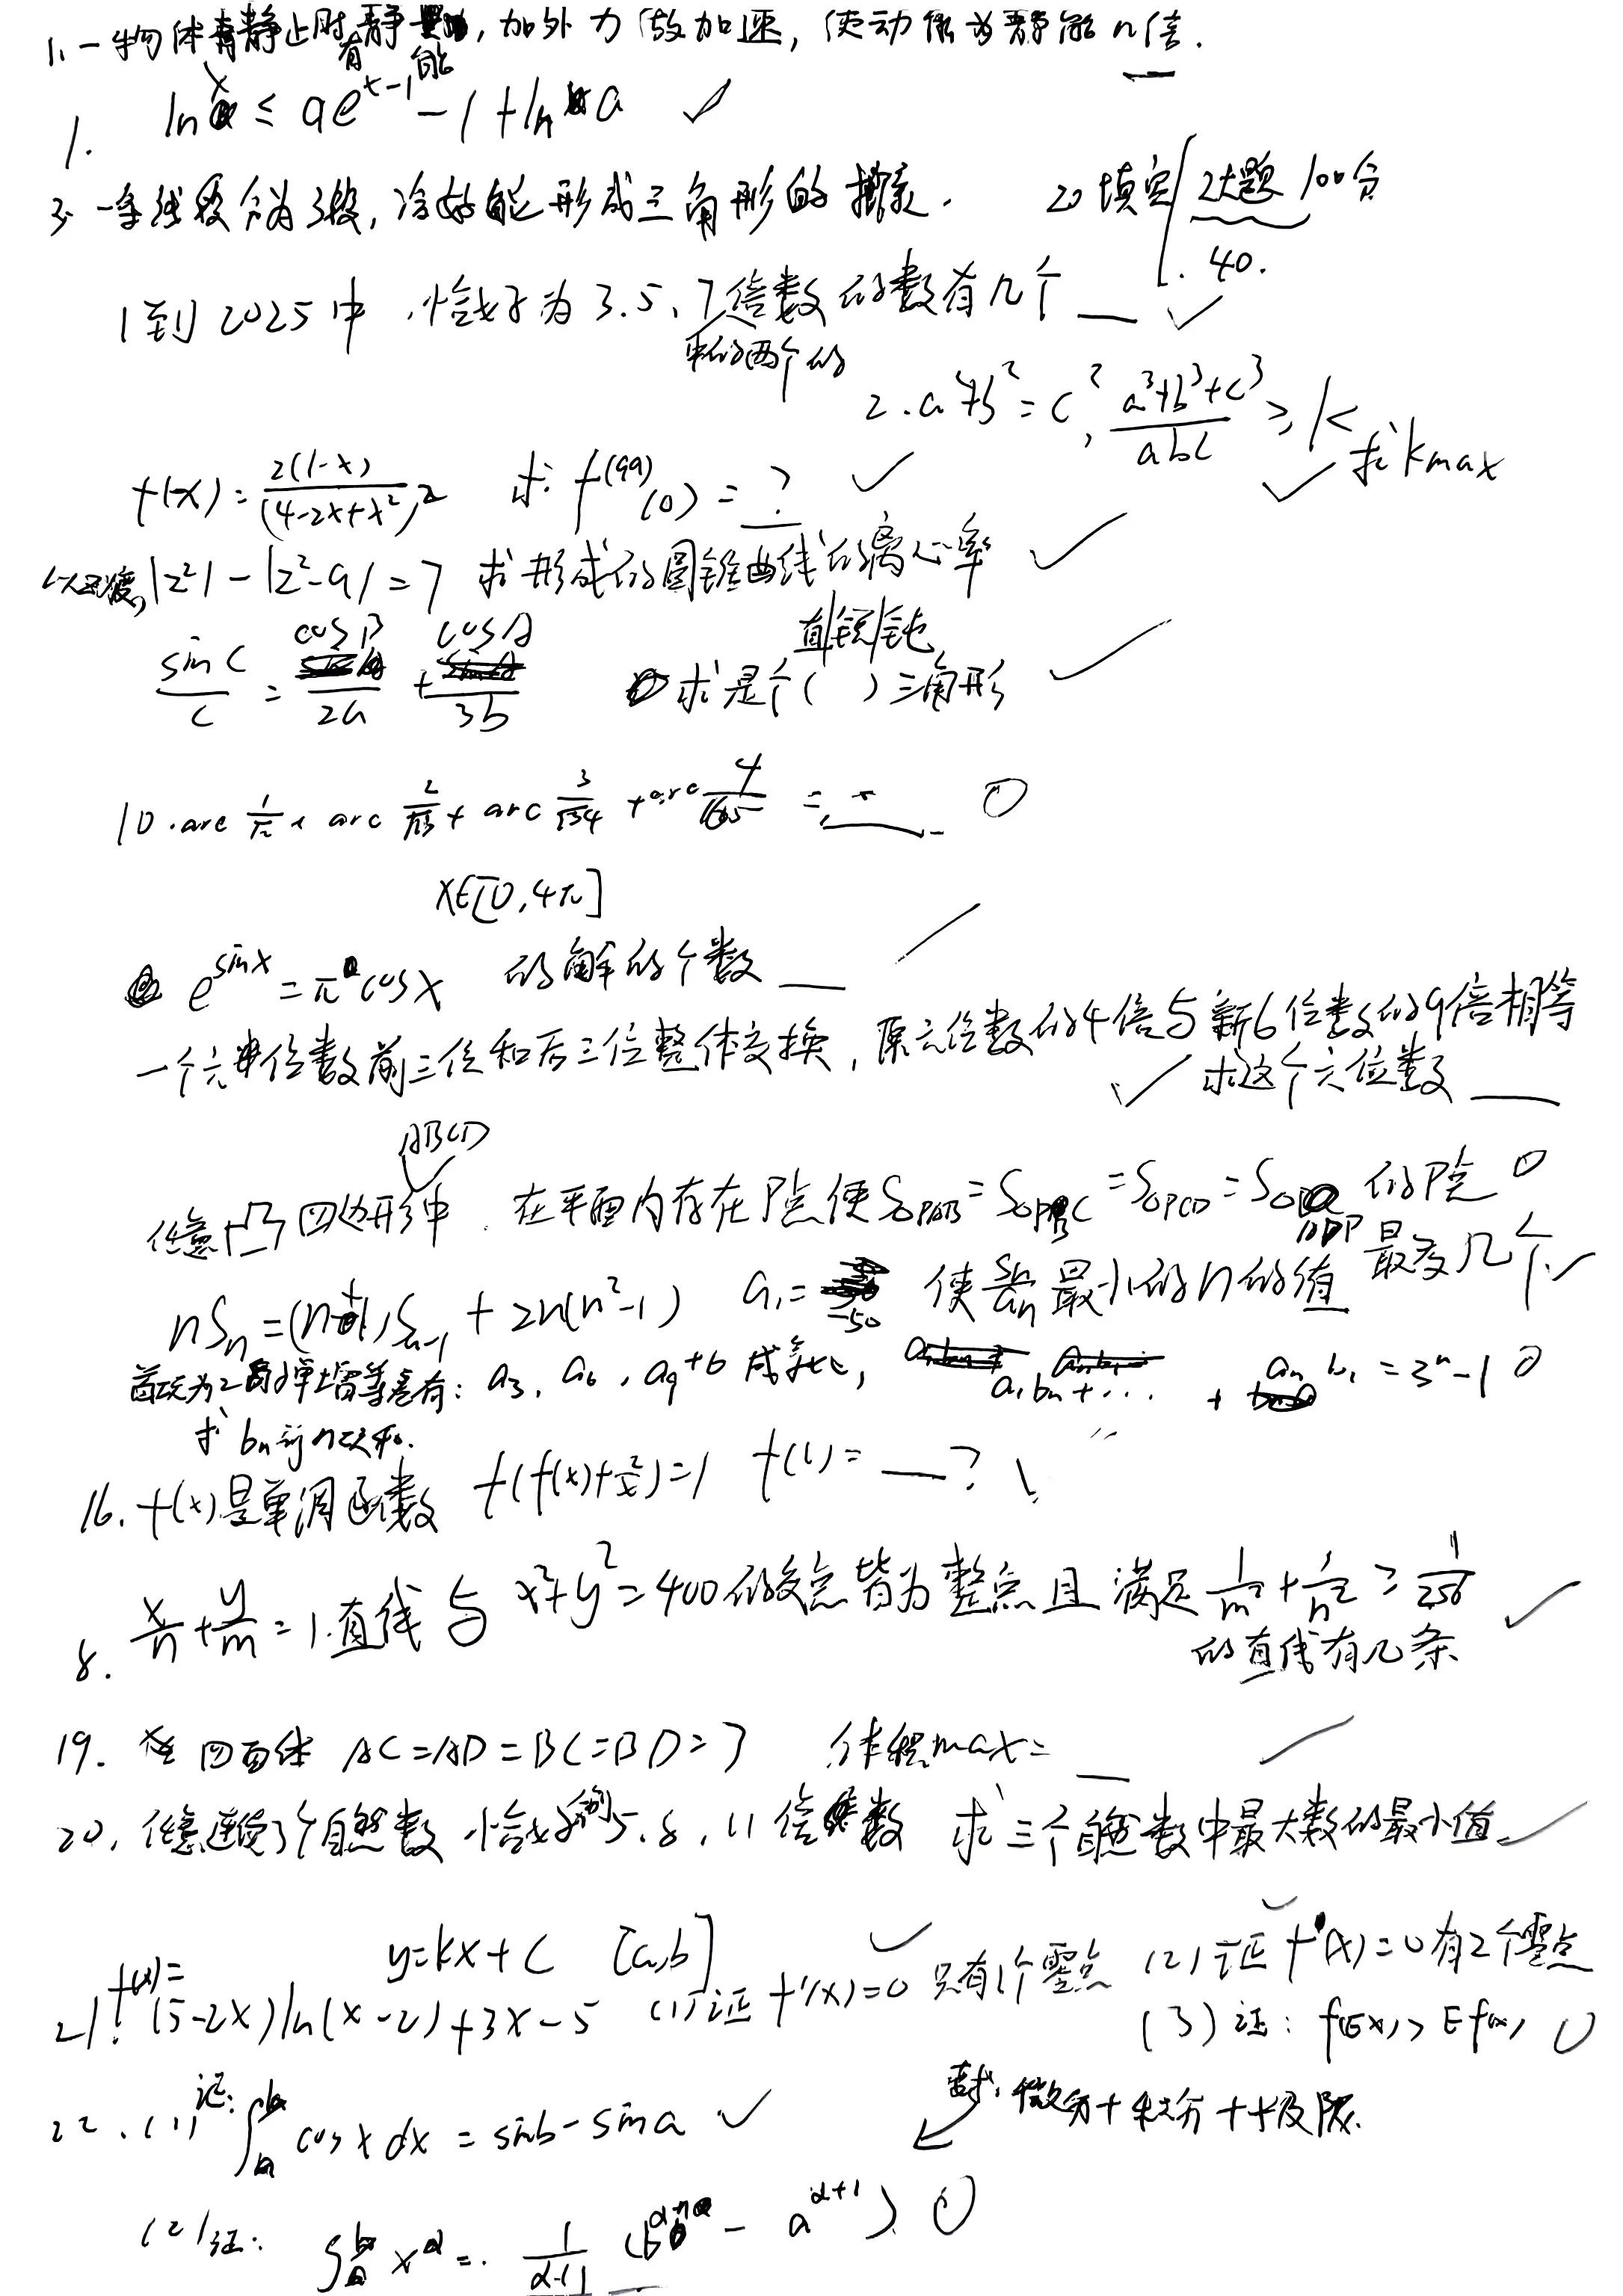 1. 一物体静止时有静能, 加外力做加速, 使动能为静能n倍.
1. ln x ≤ ae^{x-1} - 1 + ln a ✓
3. 一条线段分为3段, 恰好能形成三角形的概率. 20填空/2大题 100分
40.
1到2025中, 恰好为3.5、7倍数的数有几个 __ ✓
中的两个的
2. a²+b²=c², \frac{a³+b³+c³}{abc} ≥ k
✓ 求kmax
f(x) = \frac{2(1-x)}{(4-2x+x²)²} 求: f^{(99)}(0) = ? ✓
|z²| - |z²-9| = 7 求形成的圆锥曲线的离心率 ✓
\frac{sin C}{c} = \frac{cos B}{2a} + \frac{cos A}{3b} 求是个( )三角形 ✓
直/锐/钝
10. arc \frac{1}{\sqrt{2}} + arc \frac{2}{\sqrt{13}} + arc \frac{3}{\sqrt{34}} + arc \frac{4}{\sqrt{65}} = __ 0
x∈[0,4π]
e^{sin x} = π cos x 的解的个数 __
一个六位数前三位和后三位整体交换, 原六位数的4倍与新6位数的9倍相等
✓ 求这个六位数 __
ABCD
任意凸四边形中. 在平面内存在P点使S△PAB = S△PBC = S△PCD = S△ADP 的P点 0
最多几个
nS_n = (n+1)S_{n-1} + 2n(n²-1) a₁ = -50 使\frac{S_n}{a_n}最小的n的值 ✓
首项为2的单增等差有: a₃, a₆, a₉+6 成等比, a₁b_n + ... + a_n b₁ = 3ⁿ - 1 0
求 b_n 前n项和.
16. f(x)是单调函数 f(f(x)+\frac{2}{x}) = 1 f(1) = __ ?
8. \frac{x}{n} + \frac{y}{m} = 1. 直线与 x²+y²=400的交点皆为整点且满足 \frac{1}{m²} + \frac{1}{n²} ≥ \frac{1}{256} ✓
的直线有几条
19. 在四面体 AC=AD=BC=BD=3 体积max = __
20. 任意连续3个自然数恰好为5、8、11倍数 求三个自然数中最大数的最小值 ✓
y=kx+c [a,b] ✓
21. f(x)= (5-2x)ln(x-2)+3x-5 (1)证 f'(x)=0 只有1个零点 (2)证 f(x)=0有2个零点
(3)证: f(Ex) > Ef(x) 0
22. (1) 记: ∫_a^b cos x dx = sin b - sin a ✓
微分+积分+极限.
(2)证: ∫_a^b x^α = \frac{1}{α+1} (b^{α+1} - a^{α+1}) 0